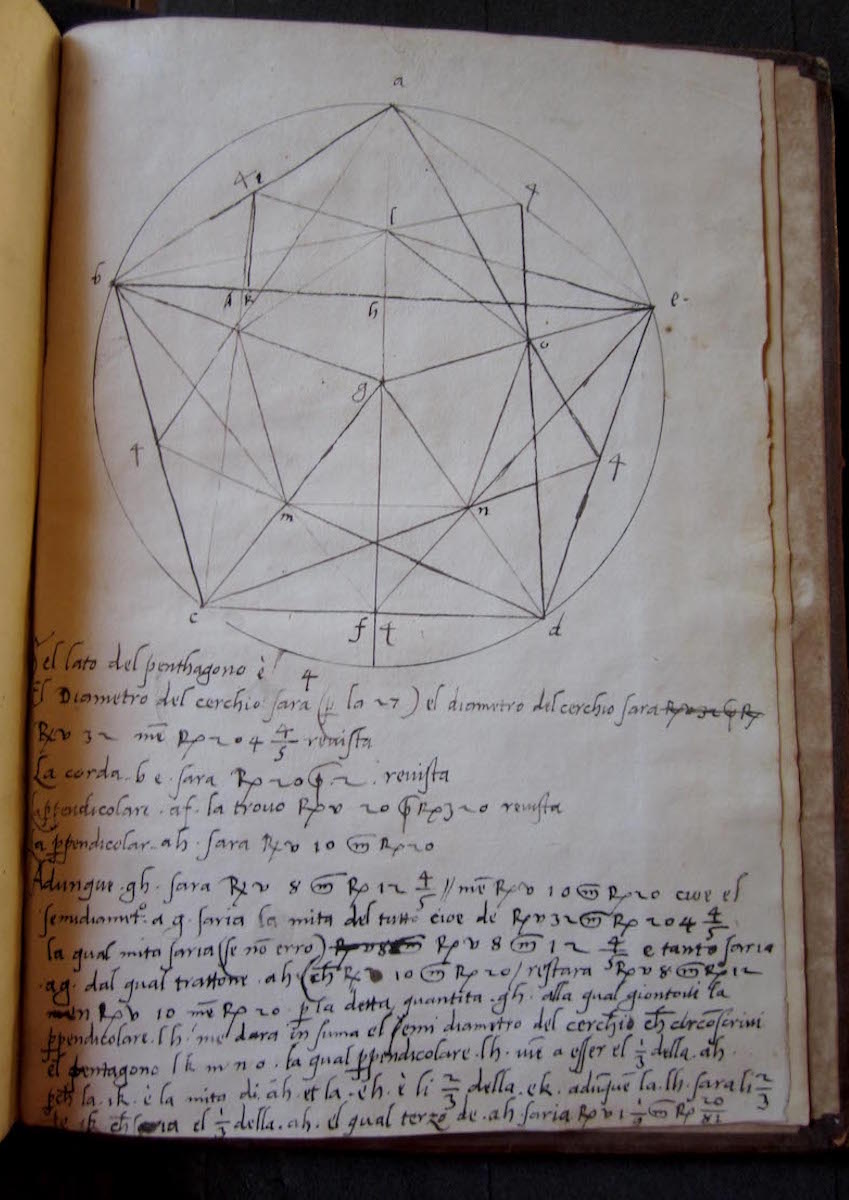 a
4 i
4
l
b
k
h
e
o
g
4
4
m
n
c
f t
d
el lato del penthagono è 4
El Diametro del cerchio sara (p la 27) el diametro del cerchio sara
Rv 32 mē R 204 4/5 reuista
La corda b e sara R 20 p 2. reuista
La ppendicolare .af. la trouo Rv 20 p R 320 reuista
La ppendicolar ah. sara Rv 10 m R 20
Adunque .gh. sara Rv 8 m R 12 4/5 // mē Rv 10 m R 20 cioe el
semidiametº. a g. saria la mita del tutto cioe de Rv 32 m R 204 4/5
la qual mita saria (se nō erro) Rv 8 m 12 4/5 e tanto saria
.ag. dal qual trattone .ah (ch Rv 10 m R 20) restara Rv 8 m R 12
Rv 10 mē R 20 p la detta quantita .gh. alla qual giontoui la
ppendicolare .lh. me dara in suma el semi diametro del cerchio ch circōscriui
el pentagono l k m n o. la qual ppendicolare .lh. uiē a esser el 1/3 della .ah.
pch la .ik. è la mita di .ah. et la .eh. è li 2/3 della .ek. adūque la .lh. sara li 2/3
de ik ch saria el 1/3 della .ah. el qual terzo de .ah. saria Rv 1 1/9 m R 20/81